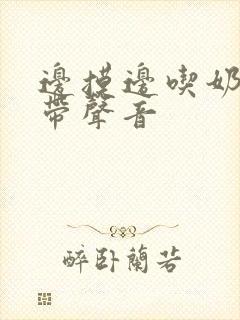 邊摸邊喫奶
帶聲音
醉卧蘭若